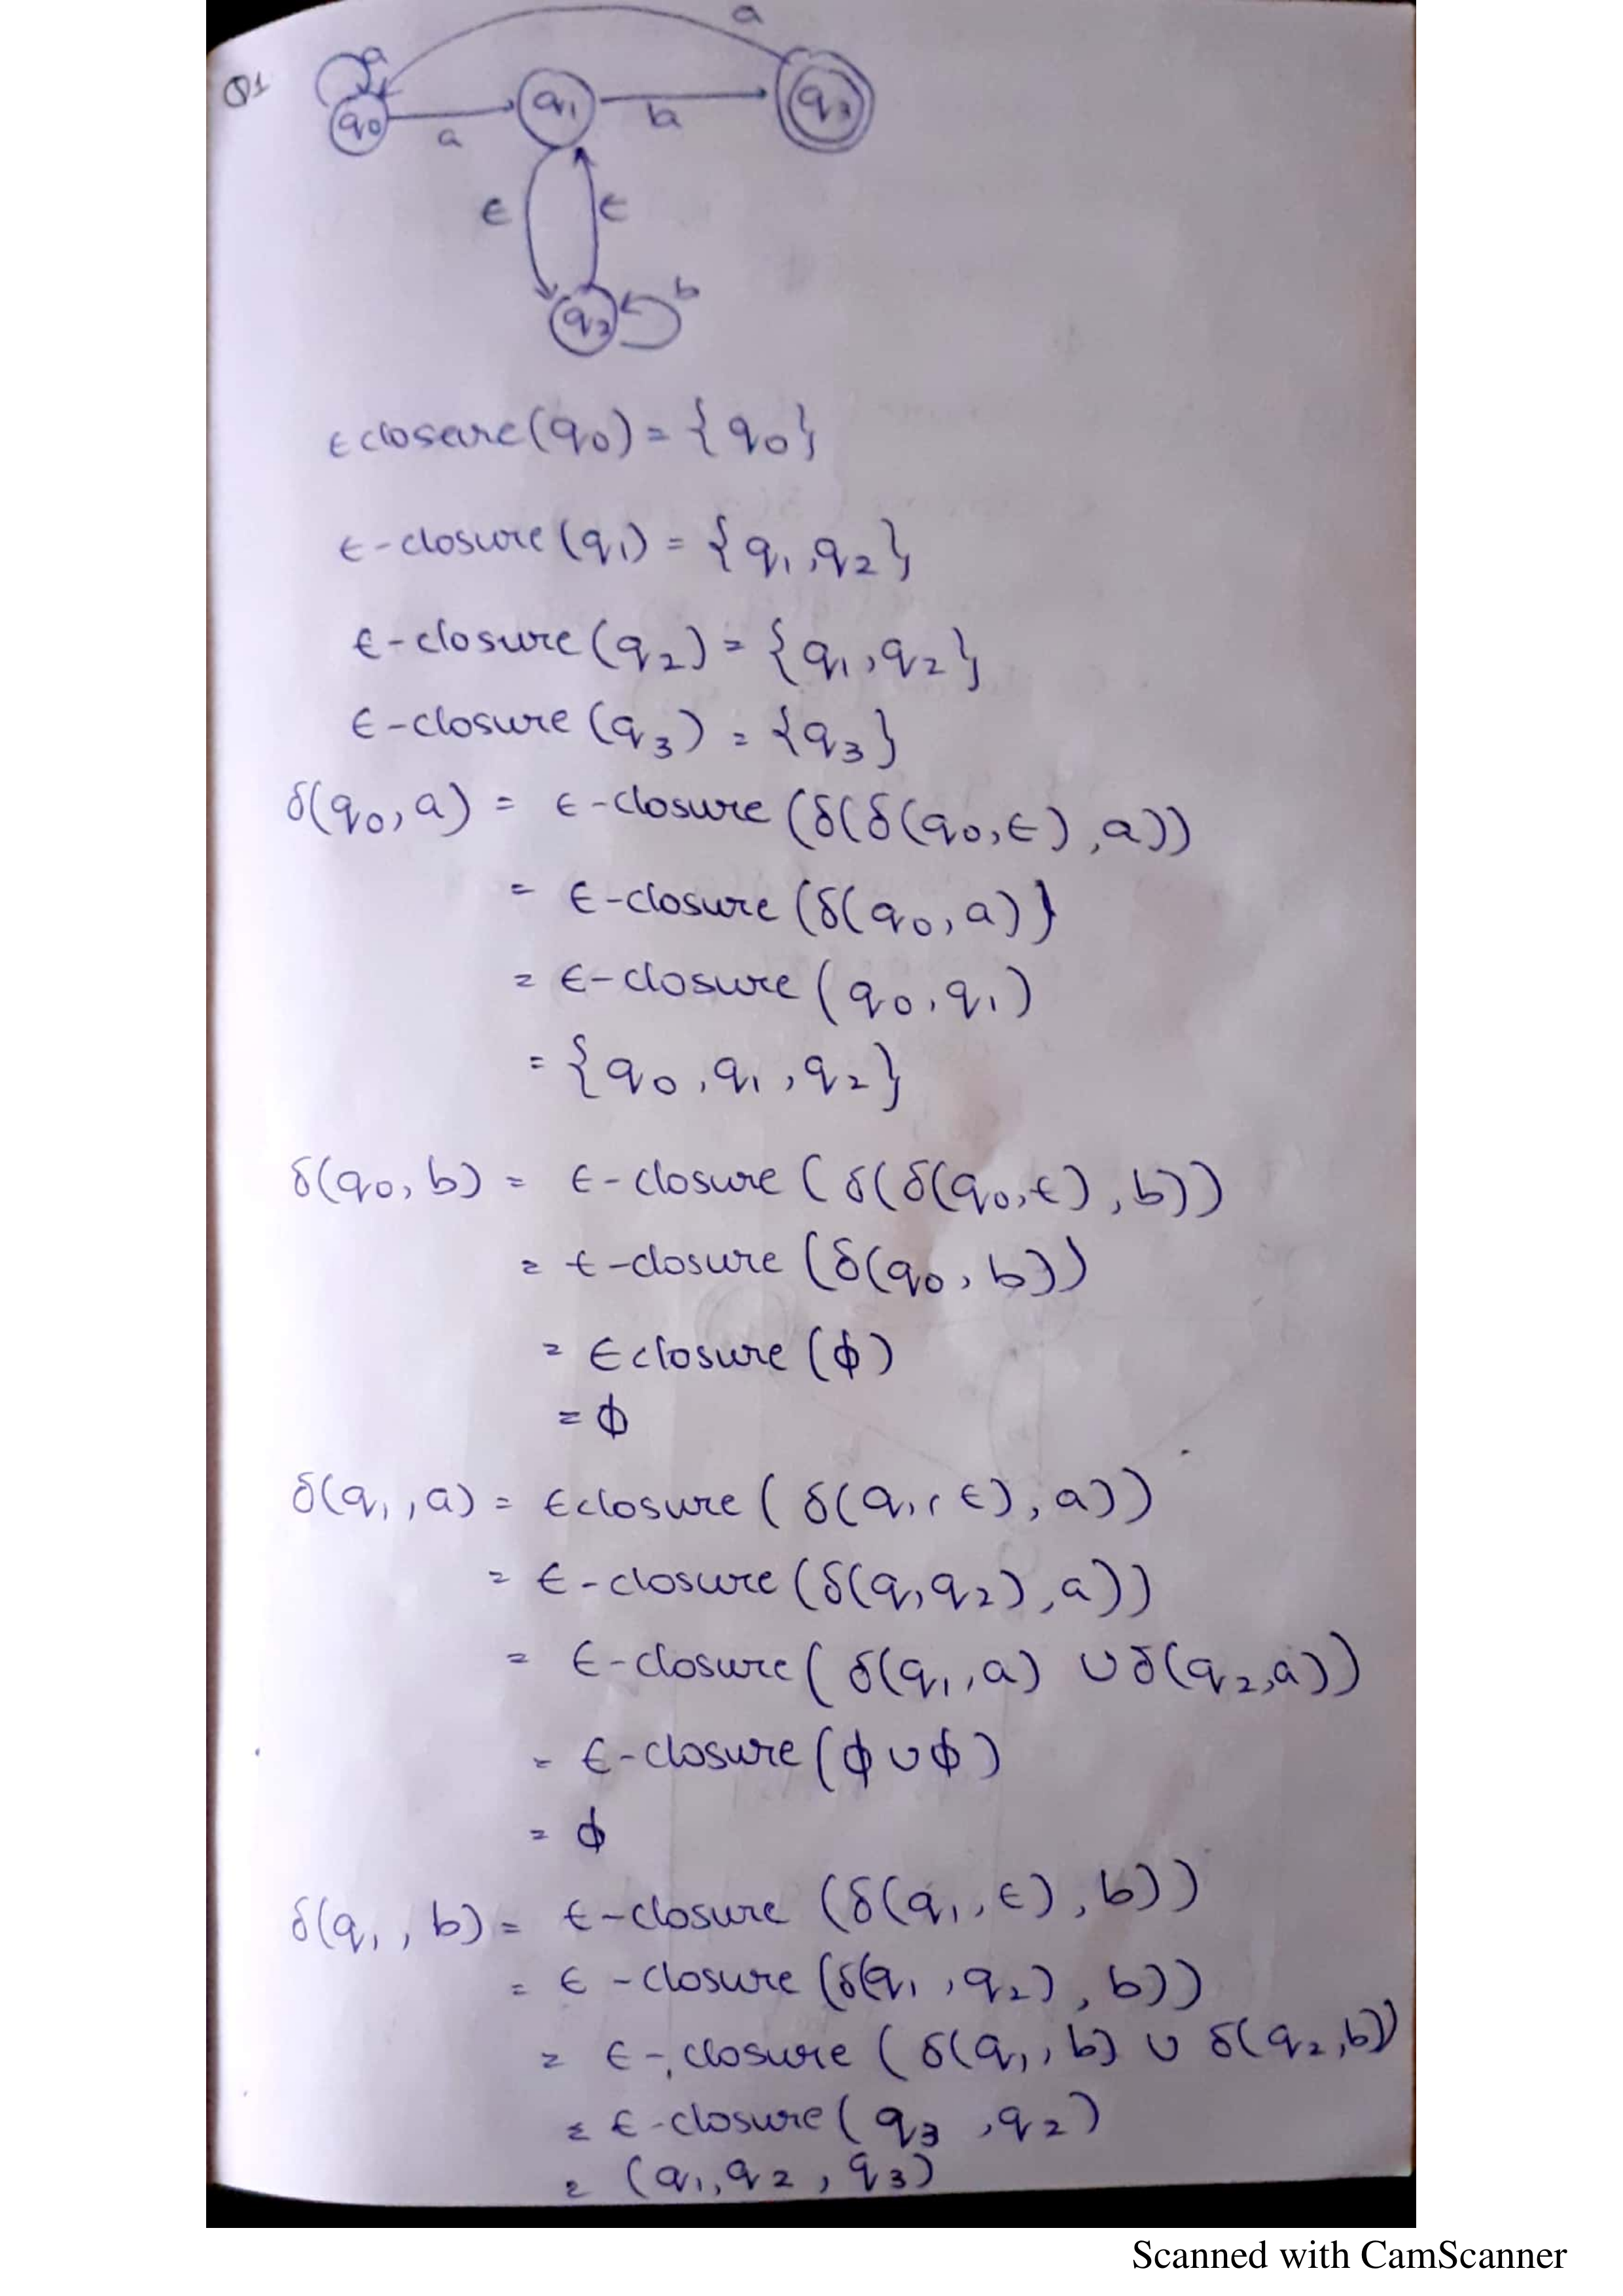 Q1
a
a
q0
a
q1
b
q3
ε
ε
q2
b
ε closure(q0) = {q0}
ε-closure(q1) = {q1,q2}
ε-closure(q2) = {q1,q2}
ε-closure(q3) = {q3}
δ(q0,a) = ε-closure(δ(δ(q0,ε),a))
= ε-closure(δ(q0,a)}
= ε-closure(q0,q1)
= {q0,q1,q2}
δ(q0,b) = ε-closure(δ(δ(q0,ε),b))
= ε-closure(δ(q0,b))
= ε closure(ϕ)
= ϕ
δ(q1,a) = ε closure(δ(q1,ε),a))
= ε-closure(δ(q1q2),a))
= ε-closure(δ(q1,a) ∪ δ(q2,a))
= ε-closure(ϕ∪ϕ)
= ϕ
δ(q1,b) = ε-closure(δ(q1,ε),b))
= ε-closure(δ(q1,q2),b))
= ε-closure(δ(q1,b) ∪ δ(q2,b))
= ε-closure(q3,q2)
= (q1,q2,q3)
Scanned with CamScanner